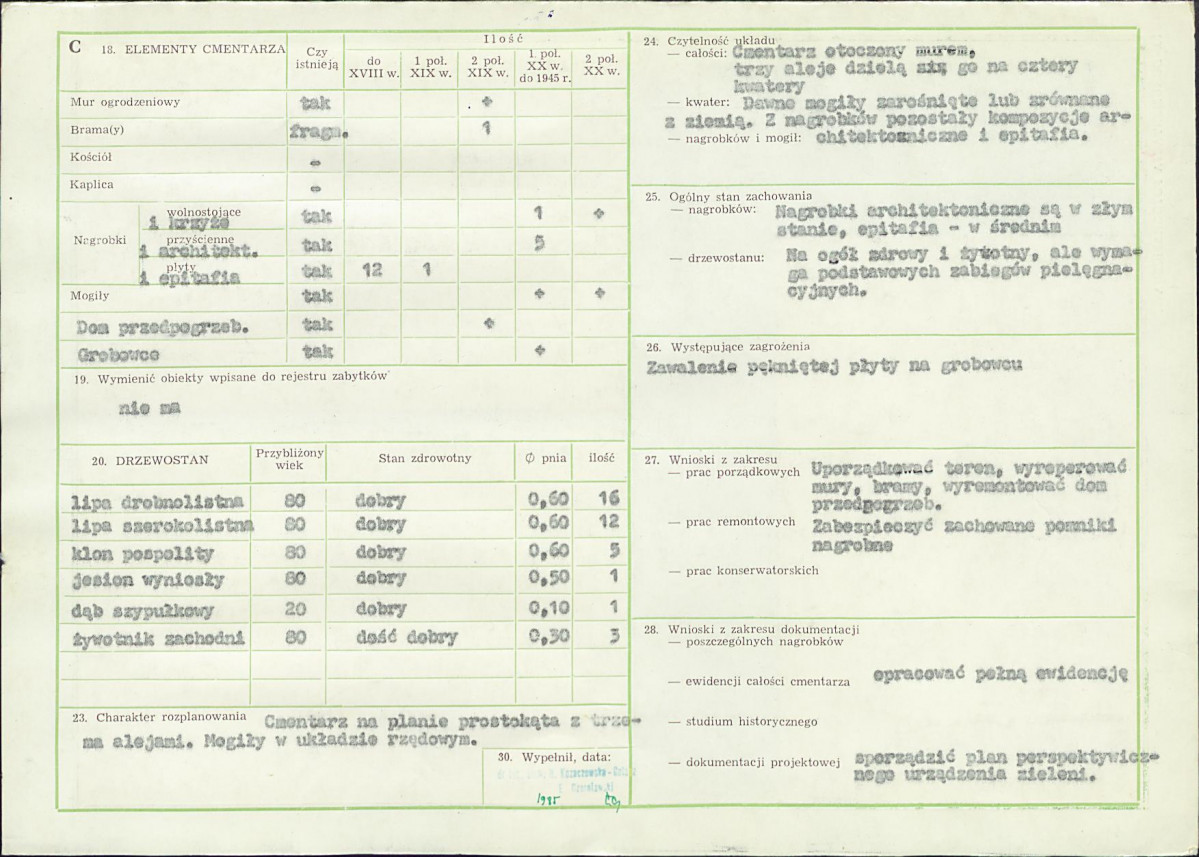 C 18. ELEMENTY CMENTARZA
Czy istnieją
Ilość
do XVIII w.
1 poł. XIX w.
2 poł. XIX w.
1. poł. XX w. do 1945 r.
2 poł. XX w.
Mur ogrodzeniowy tak +
Brama(y) fragm. 1
Kościół -
Kaplica -
Nagrobki
wolnostojące i krzyże tak 1 +
przyścienne i architekt. tak 5
płyty i epitafia tak 12 1
Mogiły tak + +
Dom przedpogrzeb. tak +
Grobowce tak +
19. Wymienić obiekty wpisane do rejestru zabytków
nie ma
20. DRZEWOSTAN Przybliżony wiek Stan zdrowotny Ø pnia ilość
lipa drobnolistna 80 dobry 0,60 16
lipa szerokolistna 80 dobry 0,60 12
klon pospolity 80 dobry 0,60 5
jesion wyniosły 80 dobry 0,50 1
dąb szypułkowy 20 dobry 0,10 1
żywotnik zachodni 80 dość dobry 0,30 3
23. Charakter rozplanowania Cmentarz na planie prostokąta z trze-
ma alejami. Mogiły w układzie rzędowym.
30. Wypełnił, data:
1985
24. Czytelność układu
— całości: Cmentarz otoczony murem,
trzy aleje dzielą się go na cztery
kwatery
— kwater: Dawne mogiły zarośnięte lub zrównane
z ziemią. Z nagrobków pozostały kompozycje ar-
— nagrobków i mogił: chitektoniczne i epitafia.
25. Ogólny stan zachowania
— nagrobków: Nagrobki architektoniczne są w złym
stanie, epitafia - w średnim
— drzewostanu: Na ogół zdrowy i żywotny, ale wyma-
ga podstawowych zabiegów pielęgna-
cyjnych.
26. Występujące zagrożenia
Zawalenie pękniętej płyty na grobowcu
27. Wnioski z zakresu
— prac porządkowych Uporządkować teren, wyreperować
mury, bramy, wyremontować dom
przedpogrzeb.
— prac remontowych Zabezpieczyć zachowane pomniki
nagrobne
— prac konserwatorskich
28. Wnioski z zakresu dokumentacji
— poszczególnych nagrobków
— ewidencji całości cmentarza opracować pełną ewidencję
— studium historycznego
— dokumentacji projektowej sporządzić plan perspektywicz-
nego urządzenia zieleni.